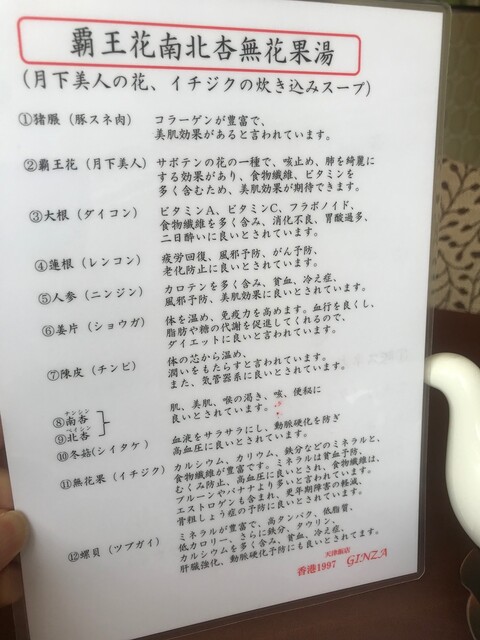 覇王花南北杏無花果湯
(月下美人の花、イチジクの炊き込みスープ)
①猪𦟌（豚スネ肉）
コラーゲンが豊富で、
美肌効果があると言われています。
②覇王花（月下美人）
サボテンの花の一種で、咳止め、肺を綺麗に
する効果があり、食物繊維、ビタミンを
多く含むため、美肌効果が期待できます。
③大根（ダイコン）
ビタミンA、ビタミンC、フラボノイド、
食物繊維を多く含み、消化不良、胃酸過多、
二日酔いに良いとされています。
④蓮根（レンコン）
疲労回復、風邪予防、がん予防、
老化防止に良いとされています。
⑤人参（ニンジン）
カロテンを多く含み、貧血、冷え症、
風邪予防、美肌効果に良いとされています。
⑥姜片（ショウガ）
体を温め、免疫力を高めます。血行を良くし、
脂肪や糖の代謝を促進してくれるので、
ダイエットに良いとされています。
⑦陳皮（チンピ）
体の芯から温め、
潤いをもたらすと言われています。
また、気管器系に良いとされています。
ナンシン
⑧南杏
ペイシン
⑨北杏
肌、美肌、喉の渇き、咳、便秘に
良いとされています。
⑩冬菇(シイタケ)
血液をサラサラにし、動脈硬化を防ぎ
高血圧に良いとされています。
⑪無花果（イチジク）
カルシウム、カリウム、鉄分などのミネラルと、
食物繊維が豊富です。ミネラルは貧血予防、
むくみ防止、高血圧に良いとされ、食物繊維は、
プルーンやバナナより多いと言われています。
エストロゲンも含まれ、更年期障害の軽減、
骨粗しょう症の予防に良いとされています。
⑫螺貝（ツブガイ）
ミネラルが豊富で、高タンパク、低脂質、
低カロリー、さらに鉄分、タウリン、
カルシウムを多く含み、貧血、冷え症、
肝臓強化、動脈硬化予防にも良いとされてます。
天津飯店
香港1997 GINZA